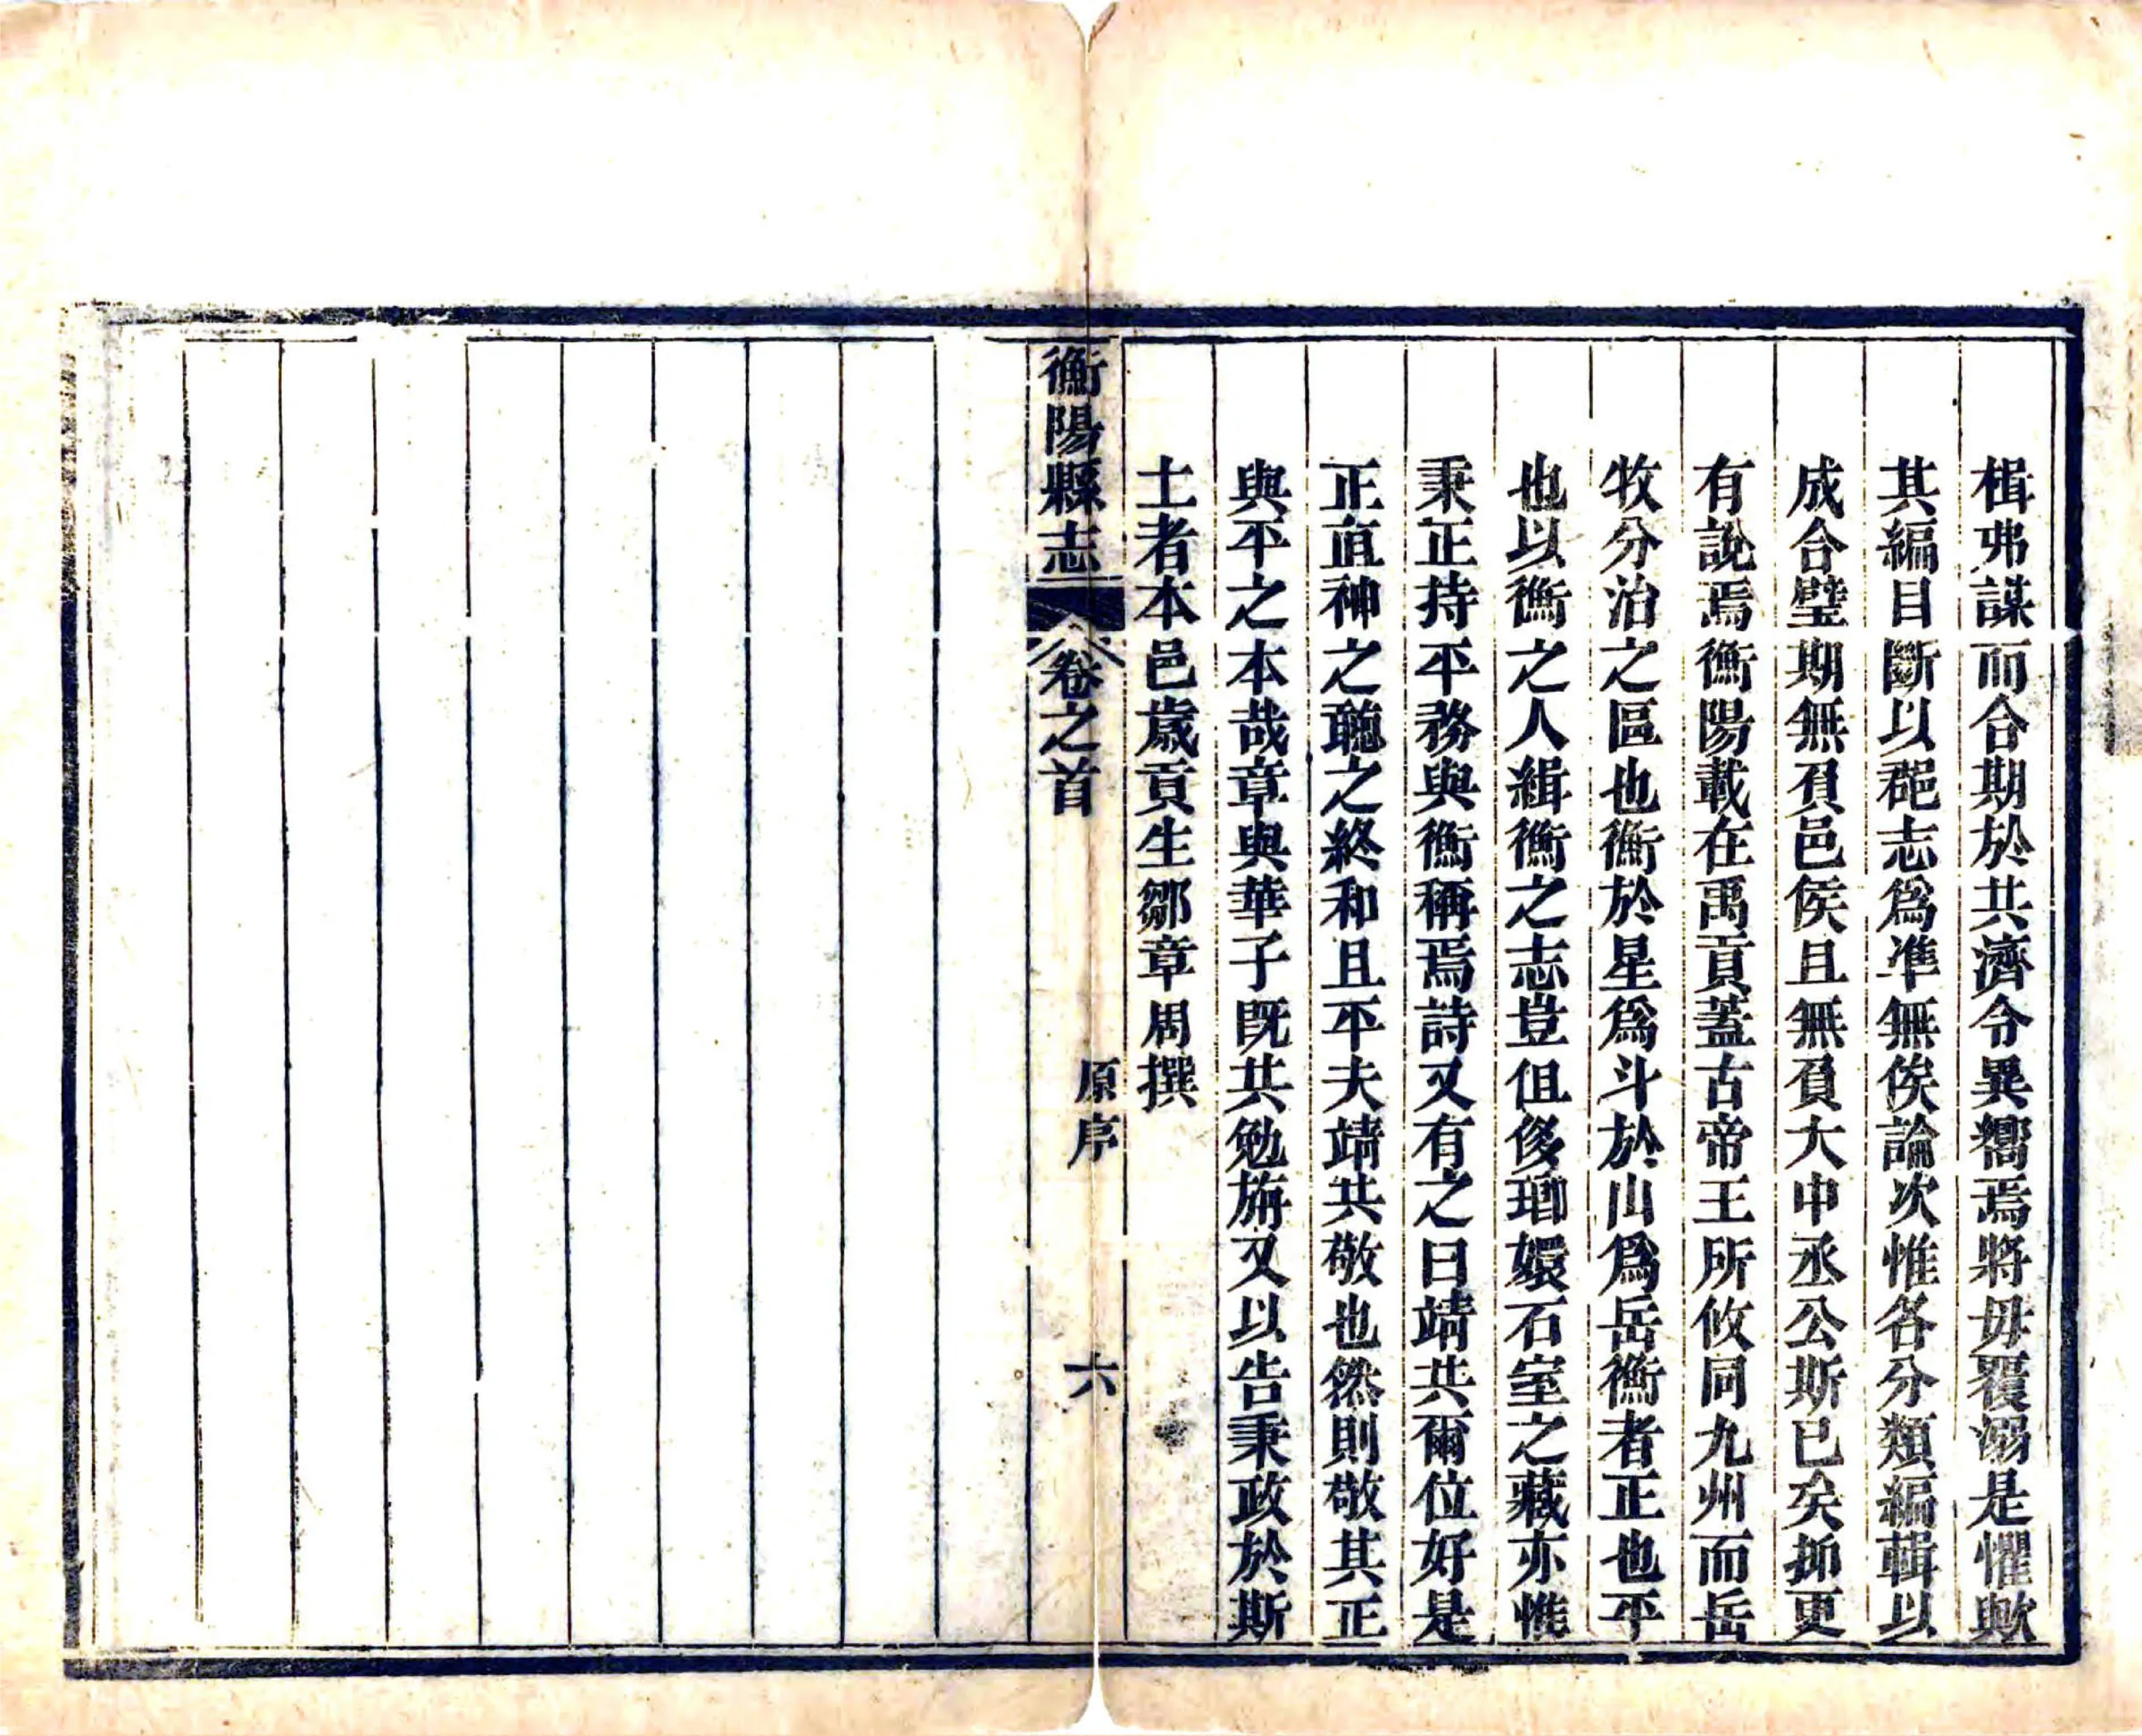 楫弗謀而合期於共濟令異嚮焉將毋覆溺是懼歟
其編目斷以郡志爲準無俟論次惟各分類編輯以
成合璧期無負邑侯且無負大中丞公斯已矣抑更
有說焉衡陽載在禹貢蓋古帝王所攸同九州而岳
牧分治之區也衡於星爲斗於山爲岳衡者正也平
也以衡之人緝衡之志豈但侈瑯嬛石室之藏亦惟
秉正持平務與衡稱焉詩又有之曰靖共爾位好是
正直神之聽之終和且平夫靖共敬也然則敬其正
與平之本哉章與華子既共勉旃又以告秉政於斯
土者本邑歲貢生鄒章周撰
衡陽縣志 卷之首 原序 六